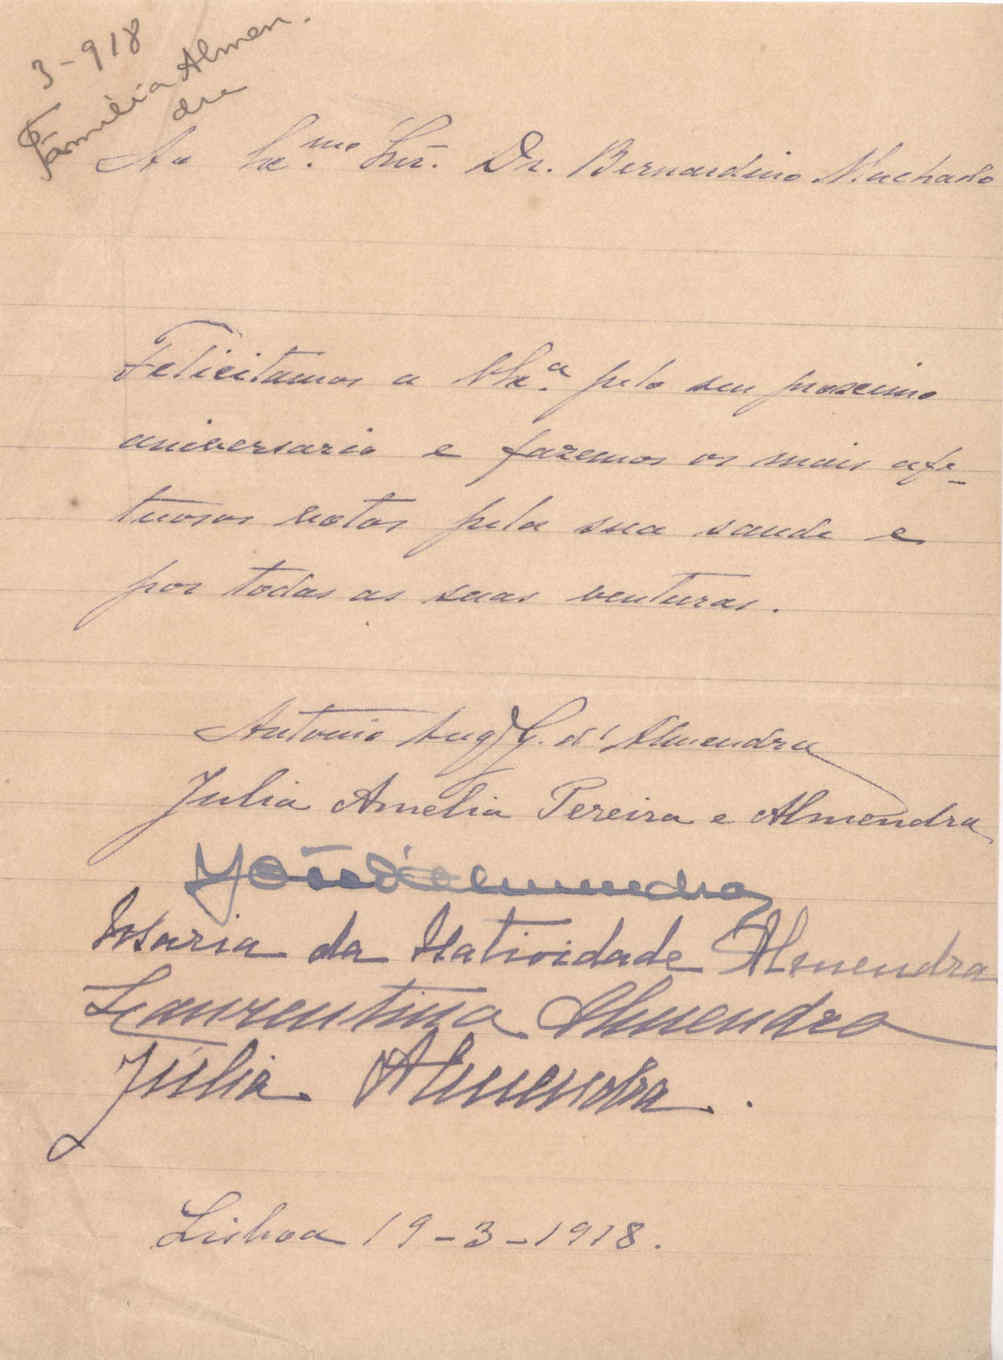 3-918
Família Almen.
dra
Ao Ex.mo Snr. Dr. Bernardino Machado
Felicitamos a V Ex.a pelo seu proximo
aniversario e fazemos os mais afe-
tuosos votos pela sua saude e
por todas as suas venturas.
Antonio Aug G. d'Almendra
Julia Amelia Pereira e Almendra
José d'Almendra
Maria da Natividade Almendra
Laurentina Almendra
Júlia Almendra.
Lisboa 19-3-1918.